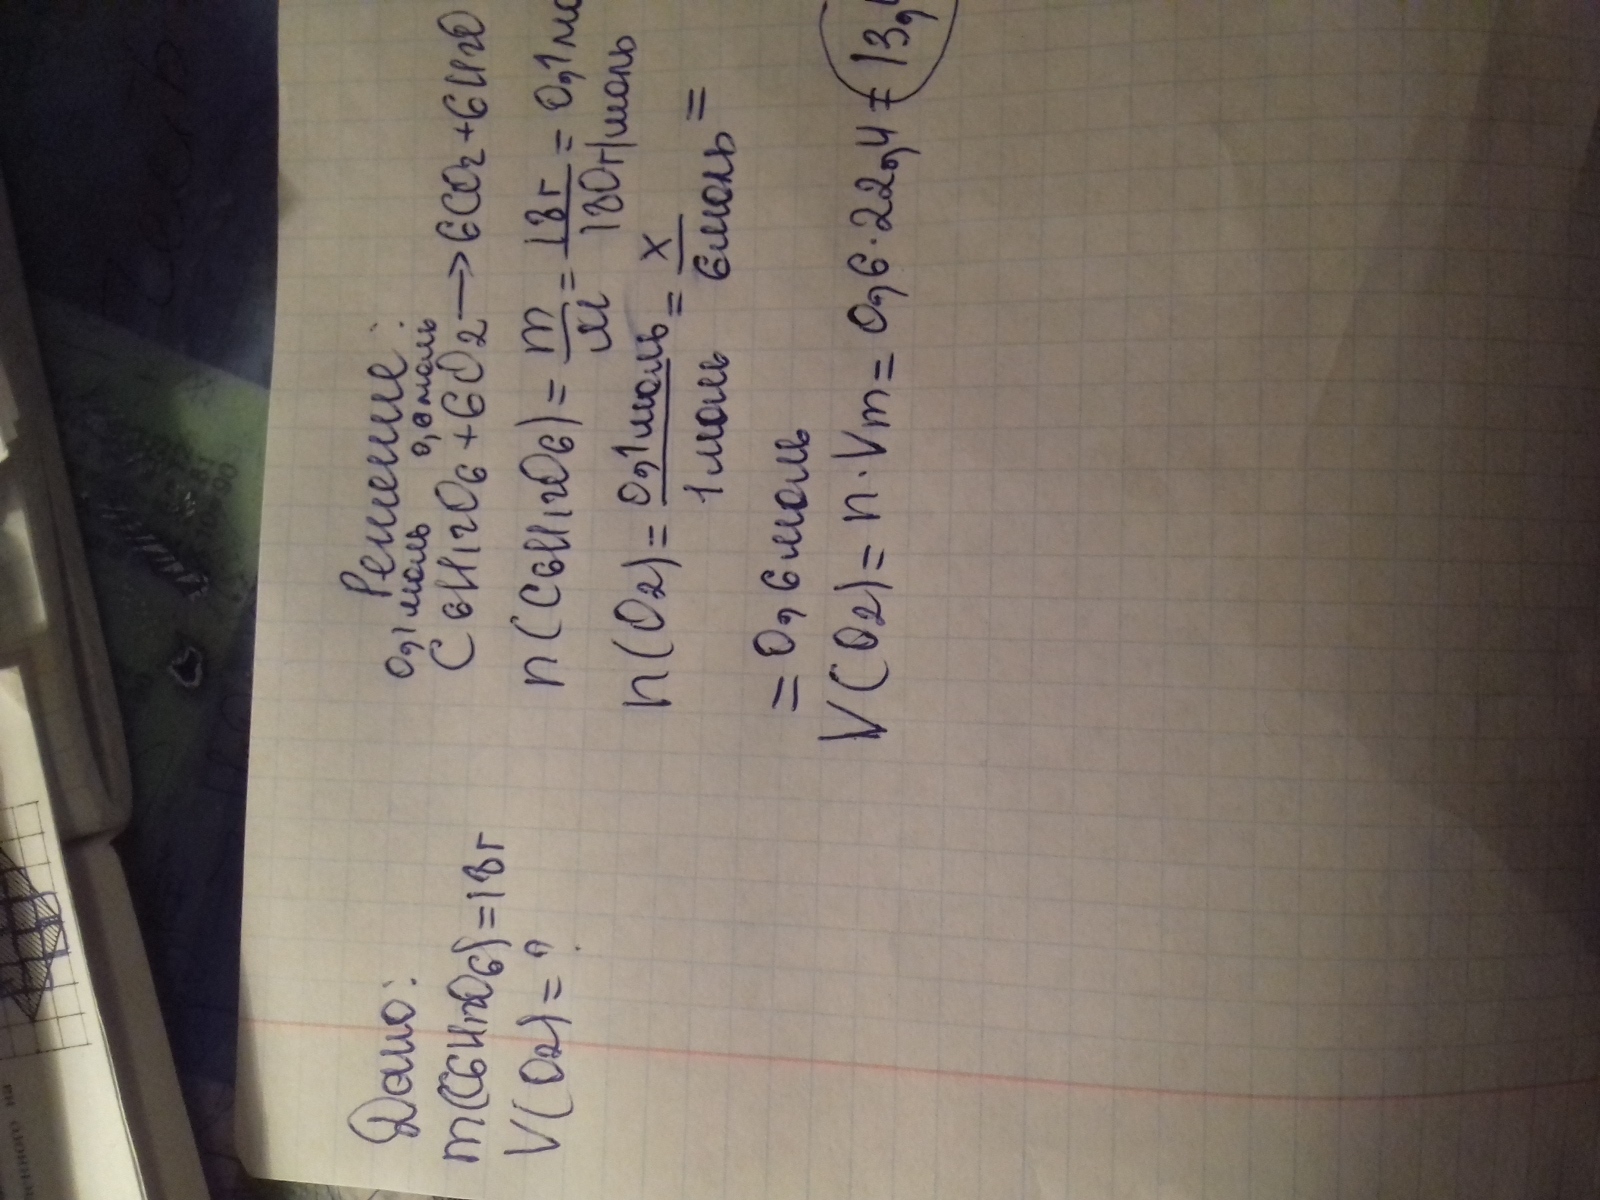 Дано:
m(C6H12O6)=18г
V(O2)=?
Решение:
0,1моль 0,6моль
C6H12O6+6O2→6CO2+6H2O
n(C6H12O6)=m/M=18г/180г/моль=0,1мо
n(O2)=0,1моль/1моль=x/6моль=
=0,6моль
V(O2)=n·Vm=0,6·22,4=13,